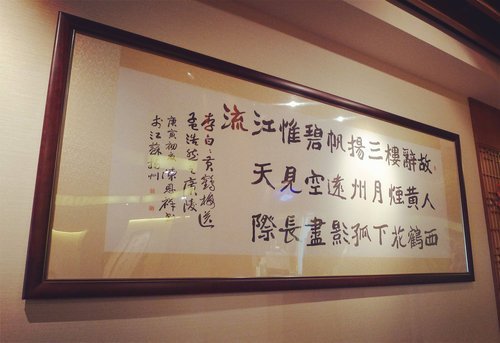 故人西
辭黃鶴
樓煙花
三月下
揚州孤
帆遠影
碧空盡
惟見長
江天際
流
李白黃鶴樓送
孟浩然之廣陵
庚寅初
於江蘇揚州